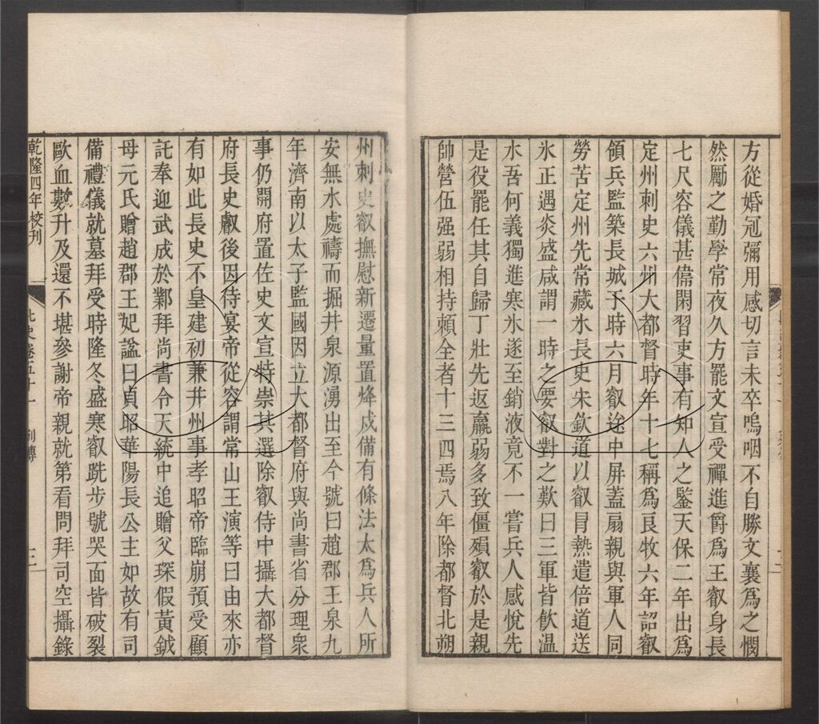 方從婚冠彌用感切言未卒嗚咽不自勝文襄爲之憫
然勵之勤學常夜久方罷文宣受禪進爵爲王叡身長
七尺容儀甚偉閑習吏事有知人之鑒天保二年出爲
定州刺史六州大都督時年十七稱爲良牧六年詔叡
領兵監築長城于時六月叡途中屏蓋扇親與軍人同
勞苦定州先常藏氷長史宋欽道以叡冒熱遣倍道送
氷正遇炎盛咸謂一時之要叡對之歎曰三軍皆飲溫
水吾何義獨進寒氷遂至銷液竟不一嘗兵人感悅先
是役罷任其自歸丁壯先返羸弱多致僵殞叡於是親
帥營伍强弱相持賴全者十三四焉八年除都督北朔
州刺史叡撫慰新遷量置烽戍備有條法大爲兵人所
安無水處禱而掘井泉源湧出至今號曰趙郡王泉九
年濟南以太子監國因立大都督府與尚書省分理衆
事仍開府置佐史文宣特崇其選除叡侍中攝大都督
府長史叡後因侍宴帝從容謂常山王演等曰由來亦
有如此長史不皇建初兼幷州事孝昭帝臨崩預受顧
託奉迎武成於鄴拜尚書令天統中追贈父琛假黃鉞
母元氏贈趙郡王妃諡曰貞昭華陽長公主如故有司
備禮儀就墓拜受時隆冬盛寒叡跣步號哭面皆破裂
歐血數升及還不堪參謝帝親就第看問拜司空攝錄
乾隆四年校刊
北史卷五十一 列傳